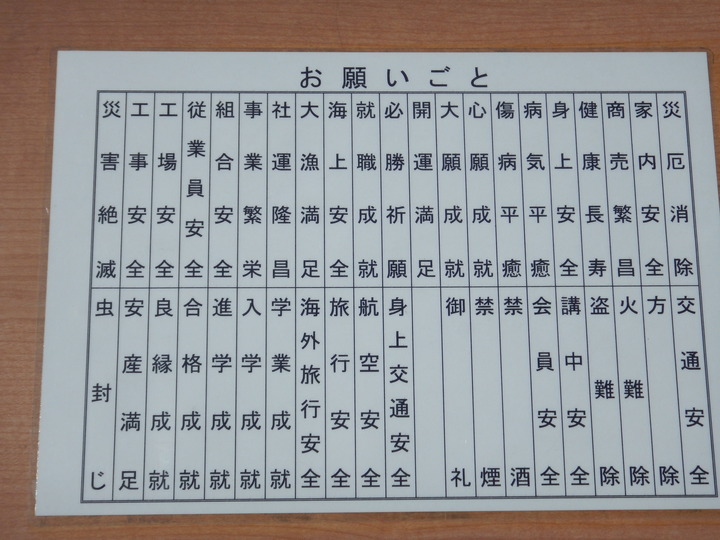 お願いごと
災厄消除
家内安全
商売繁昌
健康長寿
身上安全
病気平癒
傷病平癒
心願成就
大願成就
開運満足
必勝祈願
就職成就
海上安全
大漁満足
社運隆昌
事業繁栄
組合安全
従業員安全
工場安全
工事安全
災害絶滅
交通安全
方除
火難除
盗難除
講中安全
会員安全
禁酒
禁煙
御礼
身上交通安全
航空安全
旅行安全
海外旅行安全
学業成就
入学成就
進学成就
合格成就
良縁成就
安産満足
虫封じ